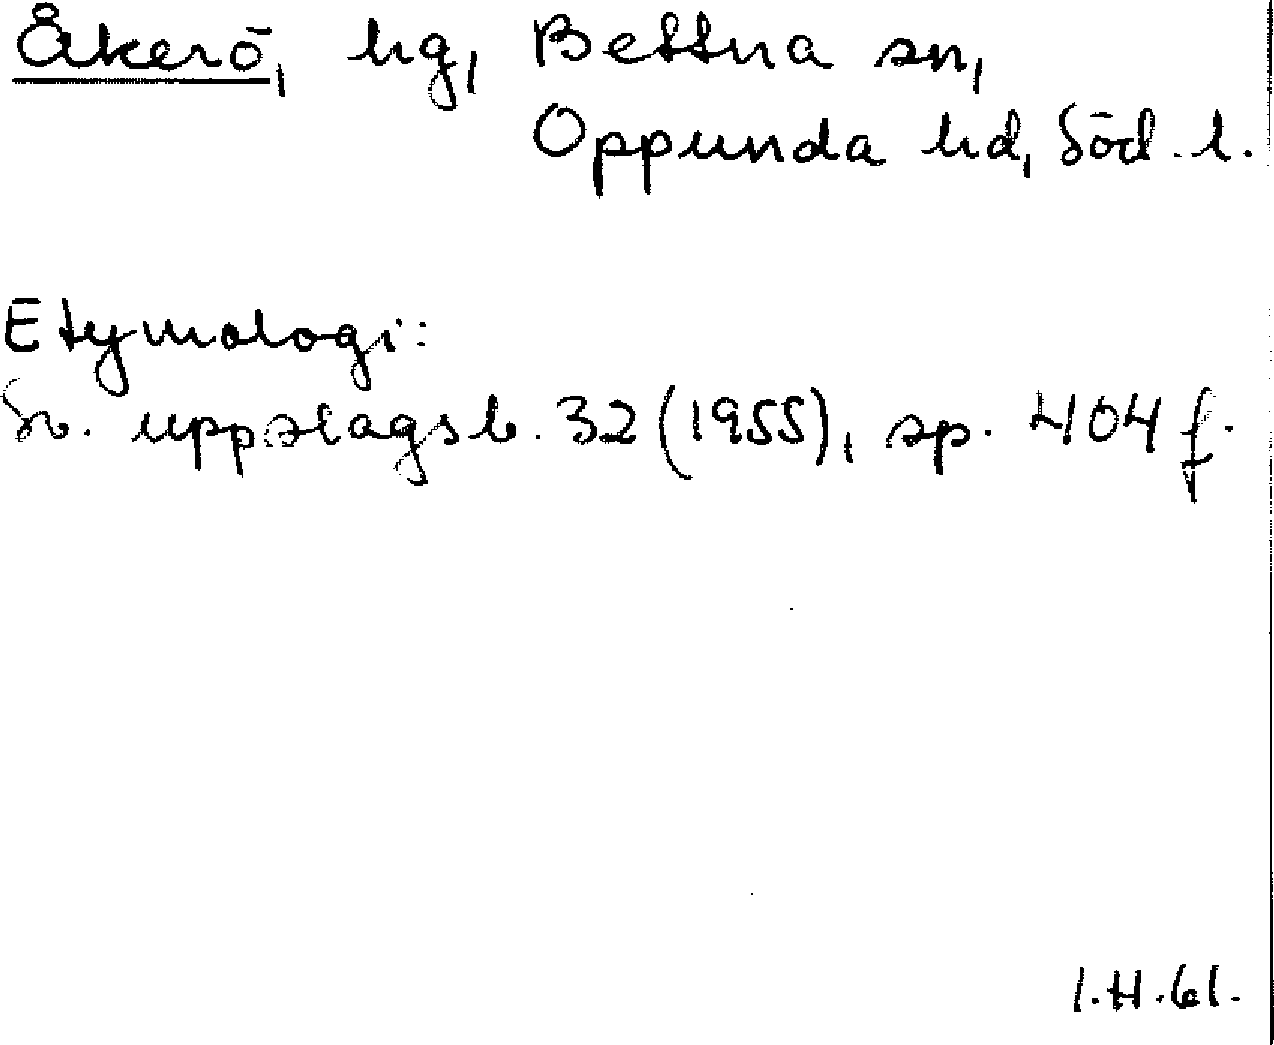 Åkerö, hg, Bettna sn,
Oppunda hd, Söd. l.
Etymologi:
Sv. uppslagsb. 32 (1955), sp. 404 f.
I.H.61.